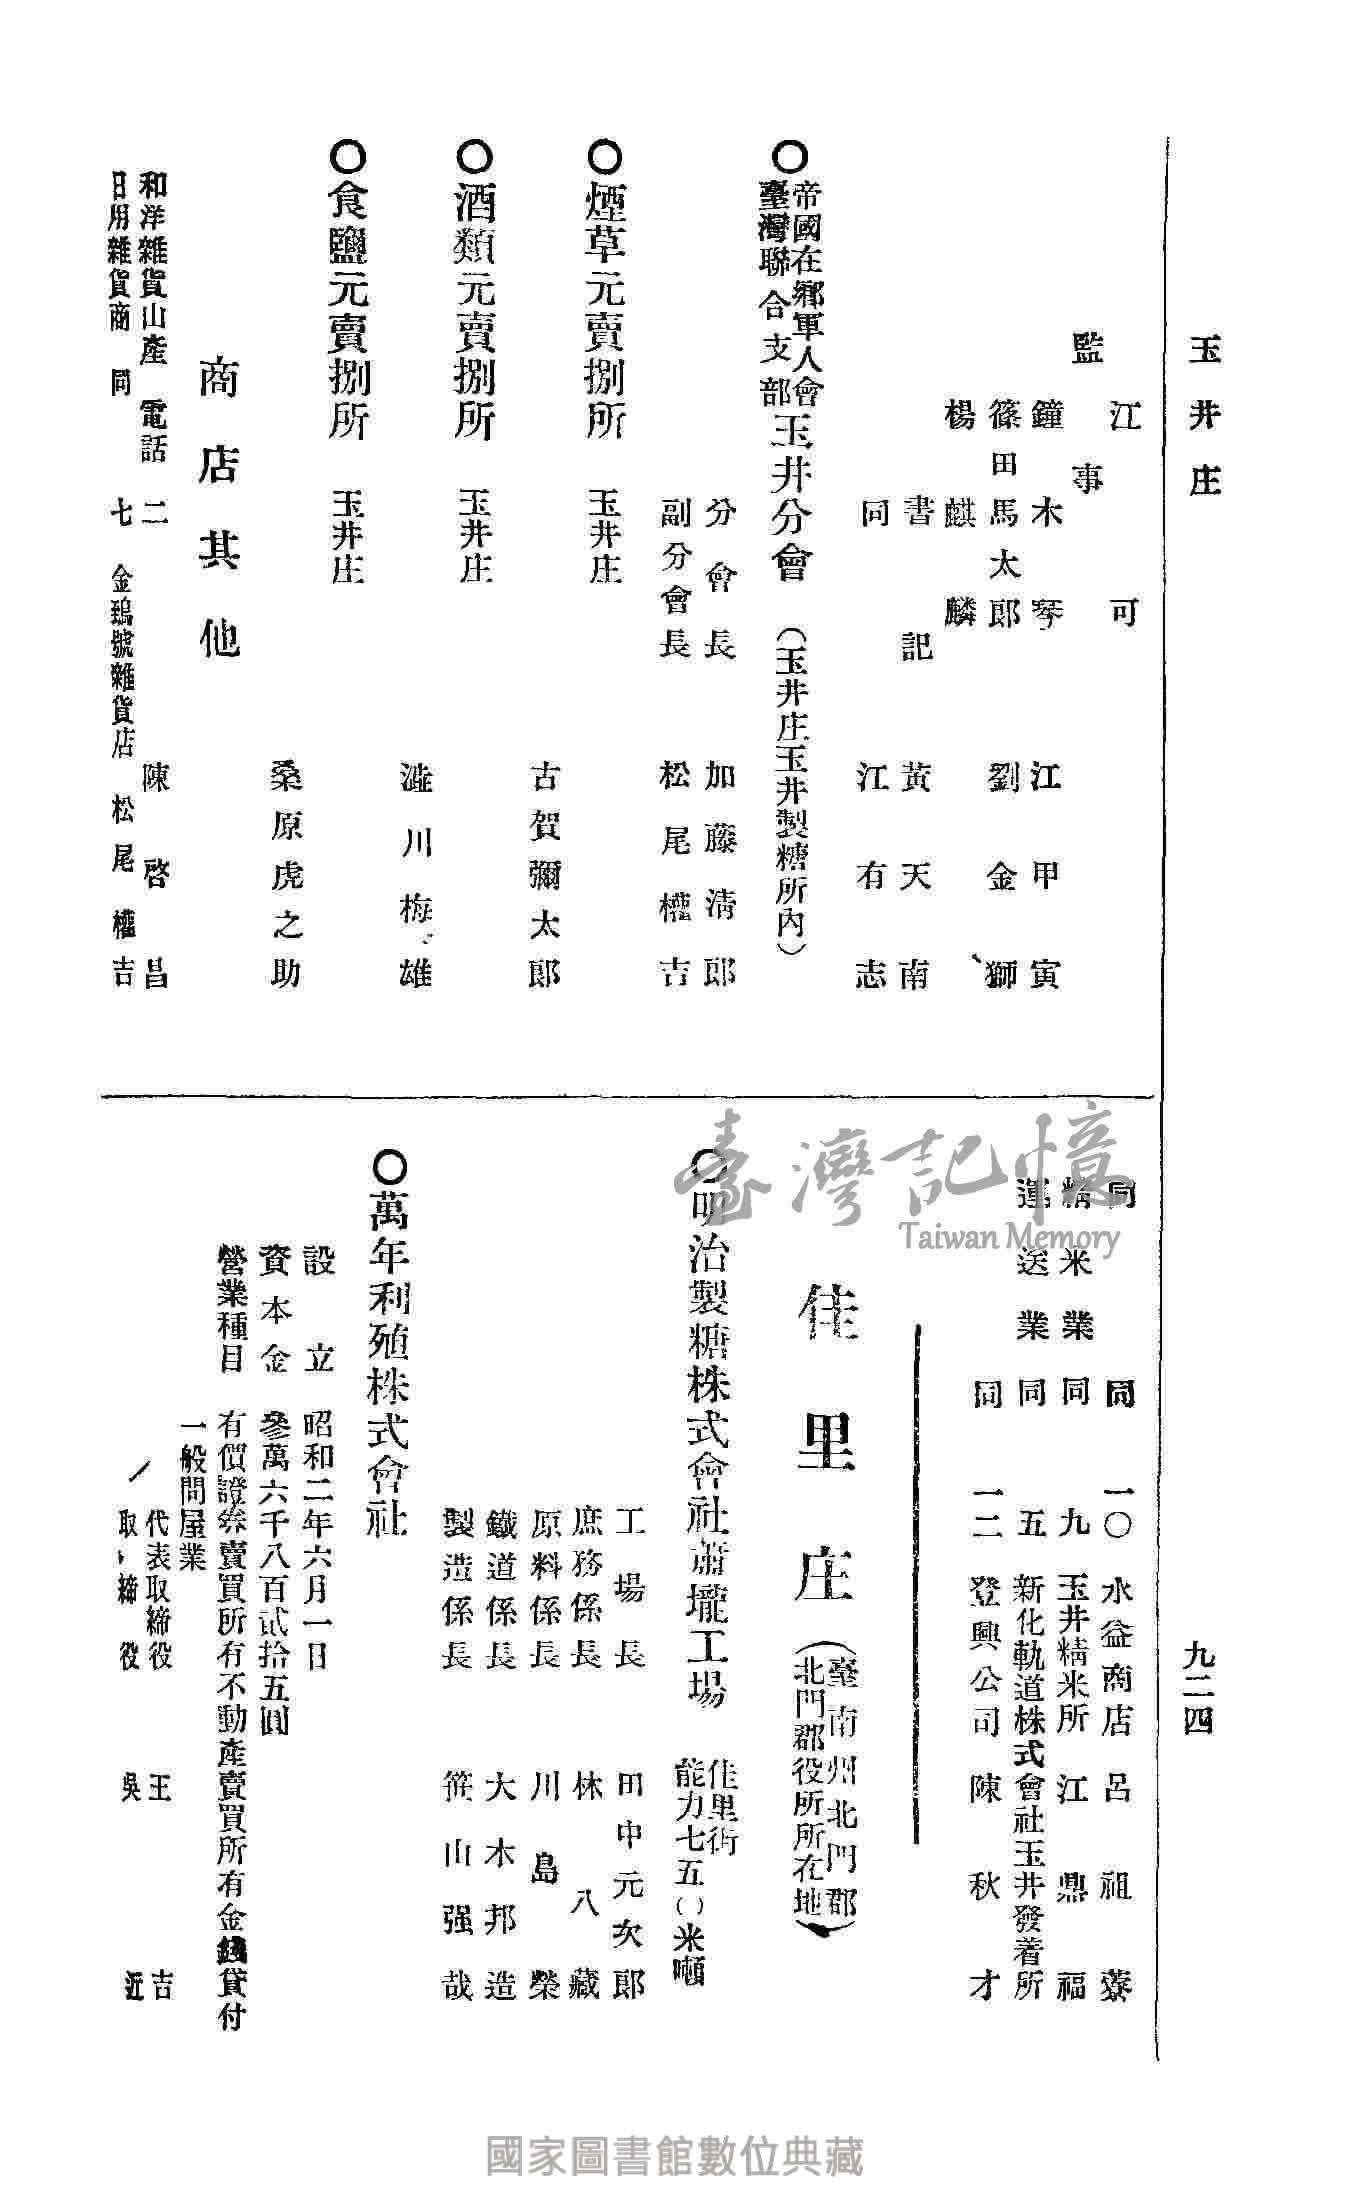 玉井庄
九二四
江可
監事
鐘木琴
江甲寅
篠田馬太郎
劉金獅
楊麒麟
書記
黃天南
同
江有志
〇帝國在鄉軍人會臺灣聯合支部玉井分會(玉井庄玉井製糖所內)
分會長 加藤清郎
副分會長 松尾權吉
〇煙草元賣捌所 玉井庄
古賀彌太郎
〇酒類元賣捌所 玉井庄
澁川梅雄
〇食鹽元賣捌所 玉井庄
桑原虎之助
商店其他
和洋雜貨山產 電話 二 陳啓昌
日用雜貨商 同 七 金鵄號雜貨店 松尾權吉
同 同 一〇 水益商店 呂祖藔
精米業 同 九 玉井精米所 江鼎福
運送業 同 五 新化軌道株式會社玉井發着所
同 一二 登興公司 陳秋才
佳里庄(臺南州北門郡北門郡役所所在地)
〇明治製糖株式會社蕭壠工場 佳里街
能力七五〇米噸
工場長 田中元次郎
庶務係長 林八藏
原料係長 川島榮
鐵道係長 大木邦造
製造係長 笹山强哉
〇萬年利殖株式會社
設立 昭和二年六月一日
資本金 參萬六千八百貳拾五圓
營業種目 有價證券賣買所有不動產賣買所有金錢貸付
一般問屋業
代表取締役 王吉
取締役 吳近
臺灣記憶
Taiwan Memory
國家圖書館數位典藏